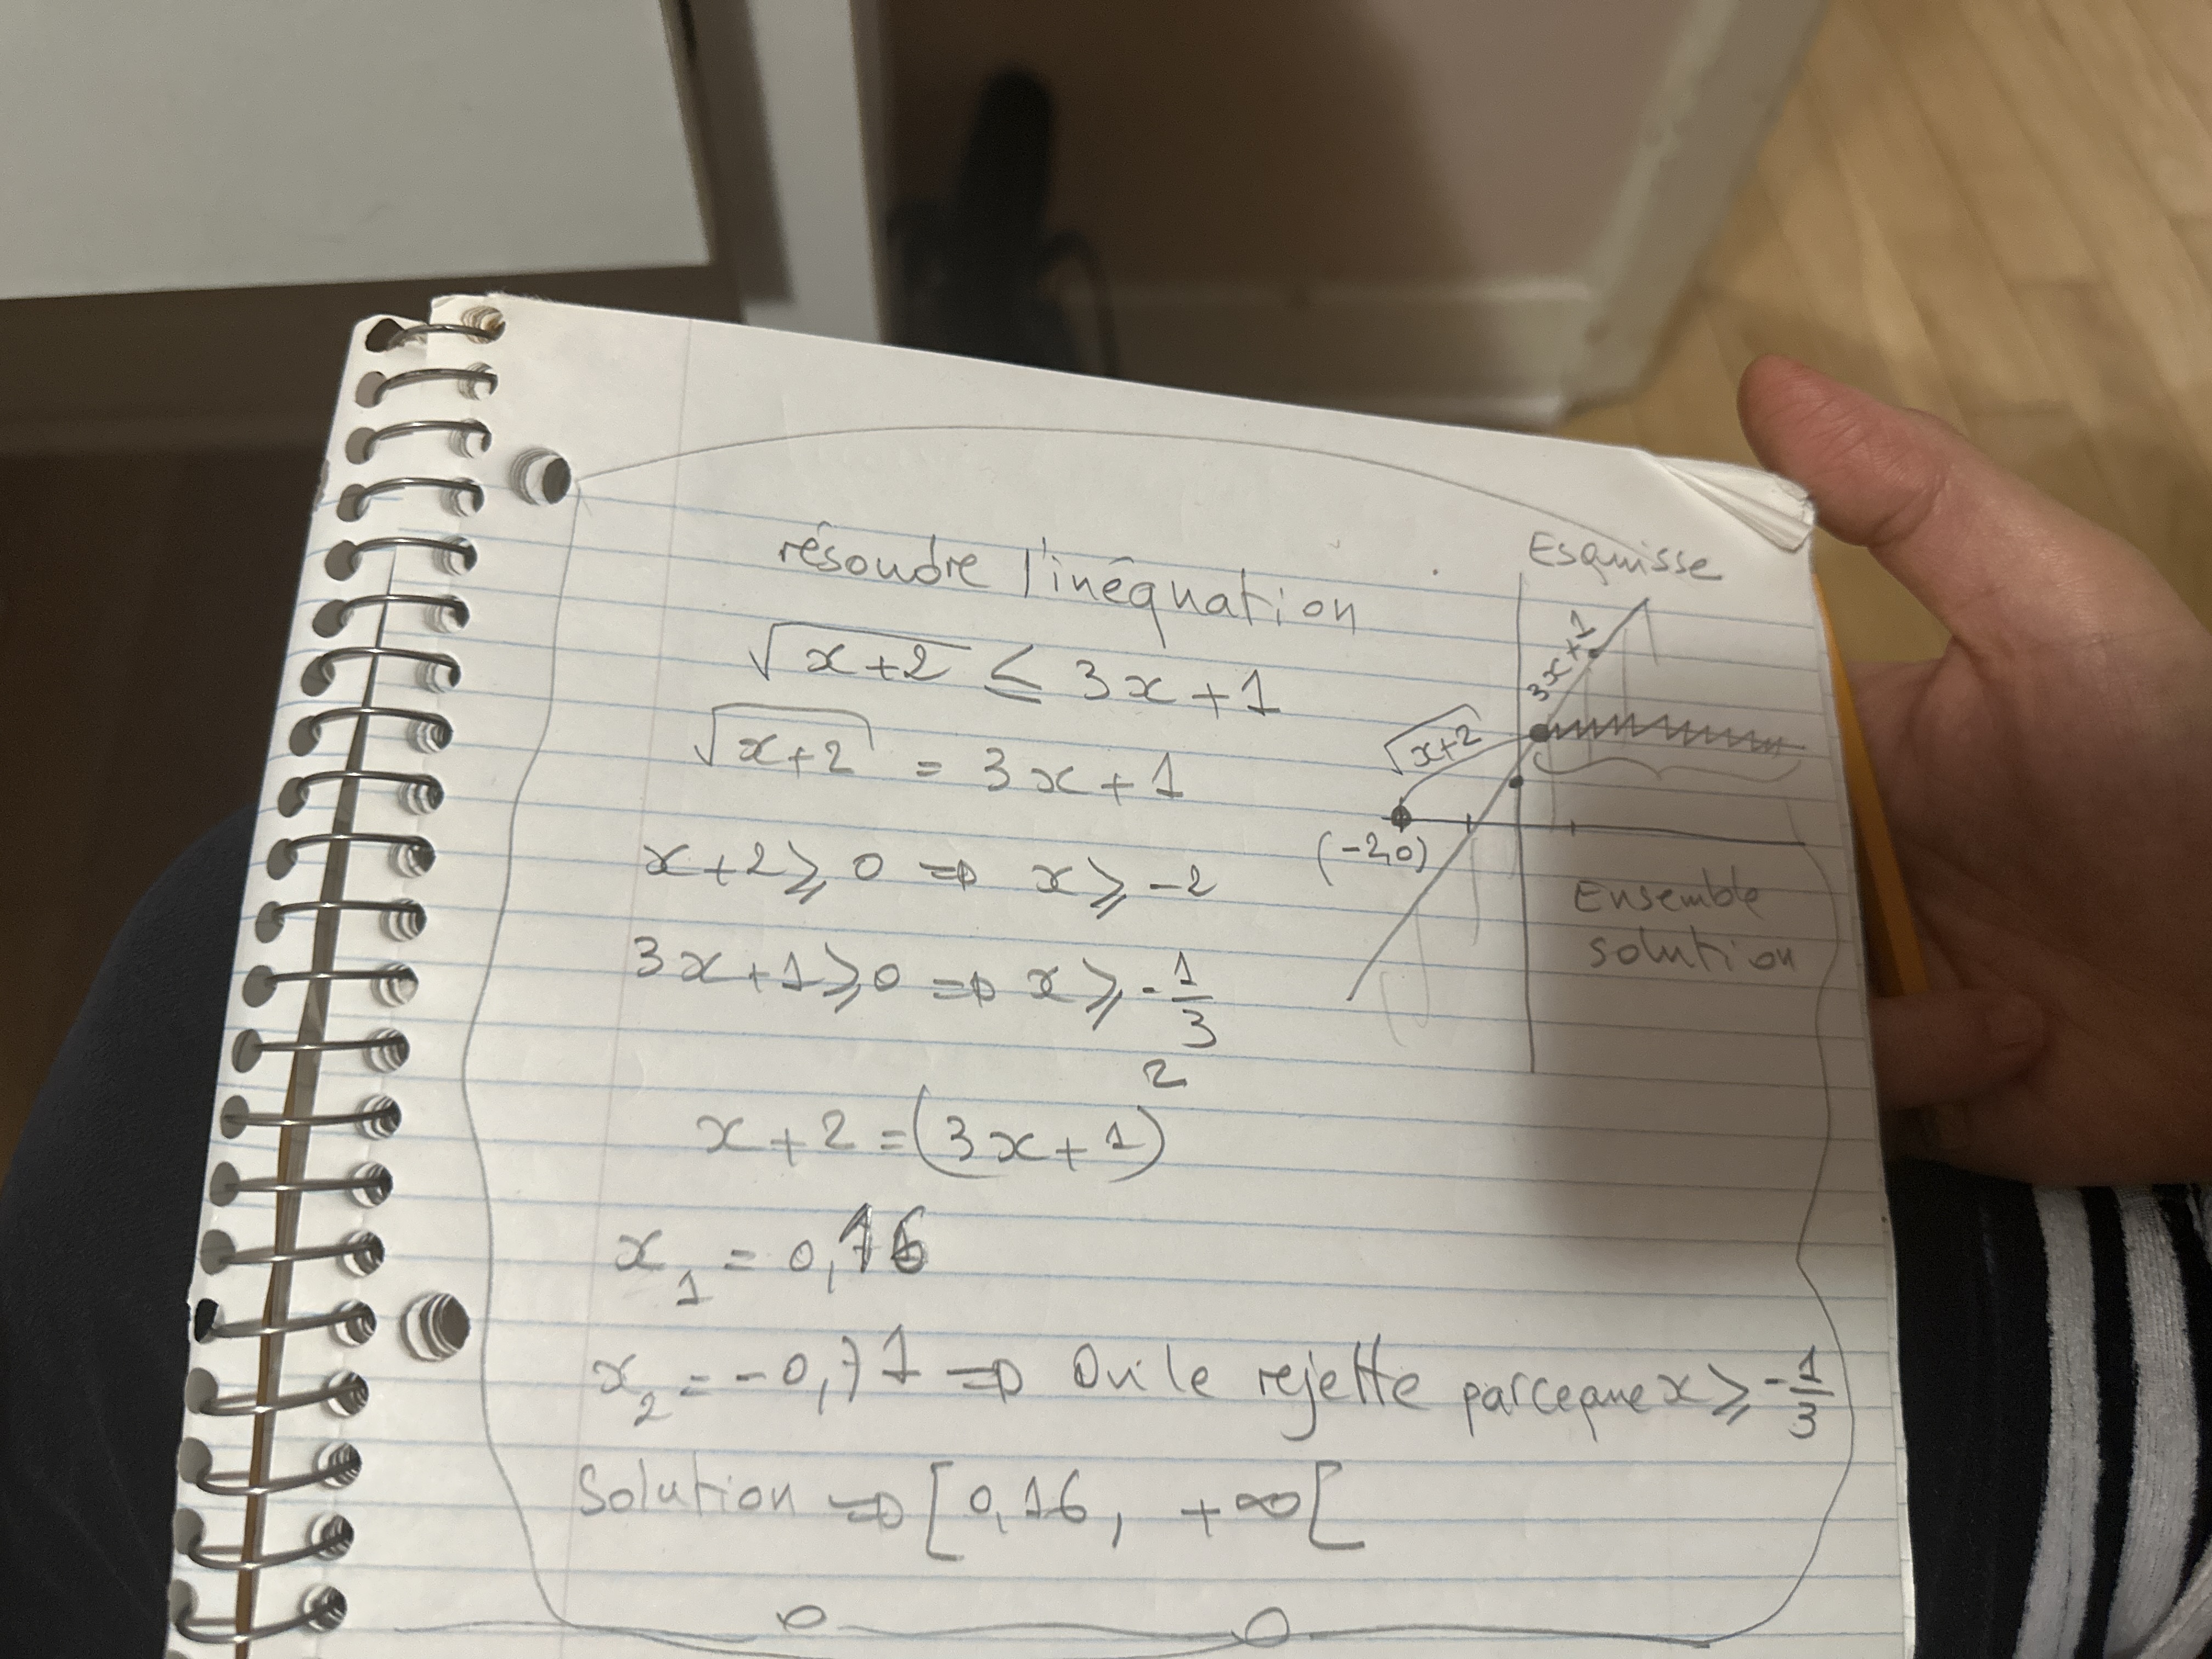 résoudre l'inéquation
√x+2 ≤ 3x+1
√x+2 = 3x+1
x+2⩾0 ⇒ x⩾-2
3x+1⩾0 ⇒ x⩾-1/3
x+2=(3x+1)²
x₁ = 0,16
x₂ = -0,71 ⇒ On le rejette parceque x⩾-1/3
Solution ⇒ [0,16, +∞[
Esquisse
3x+1
√x+2
(-2,0)
Ensemble
solution